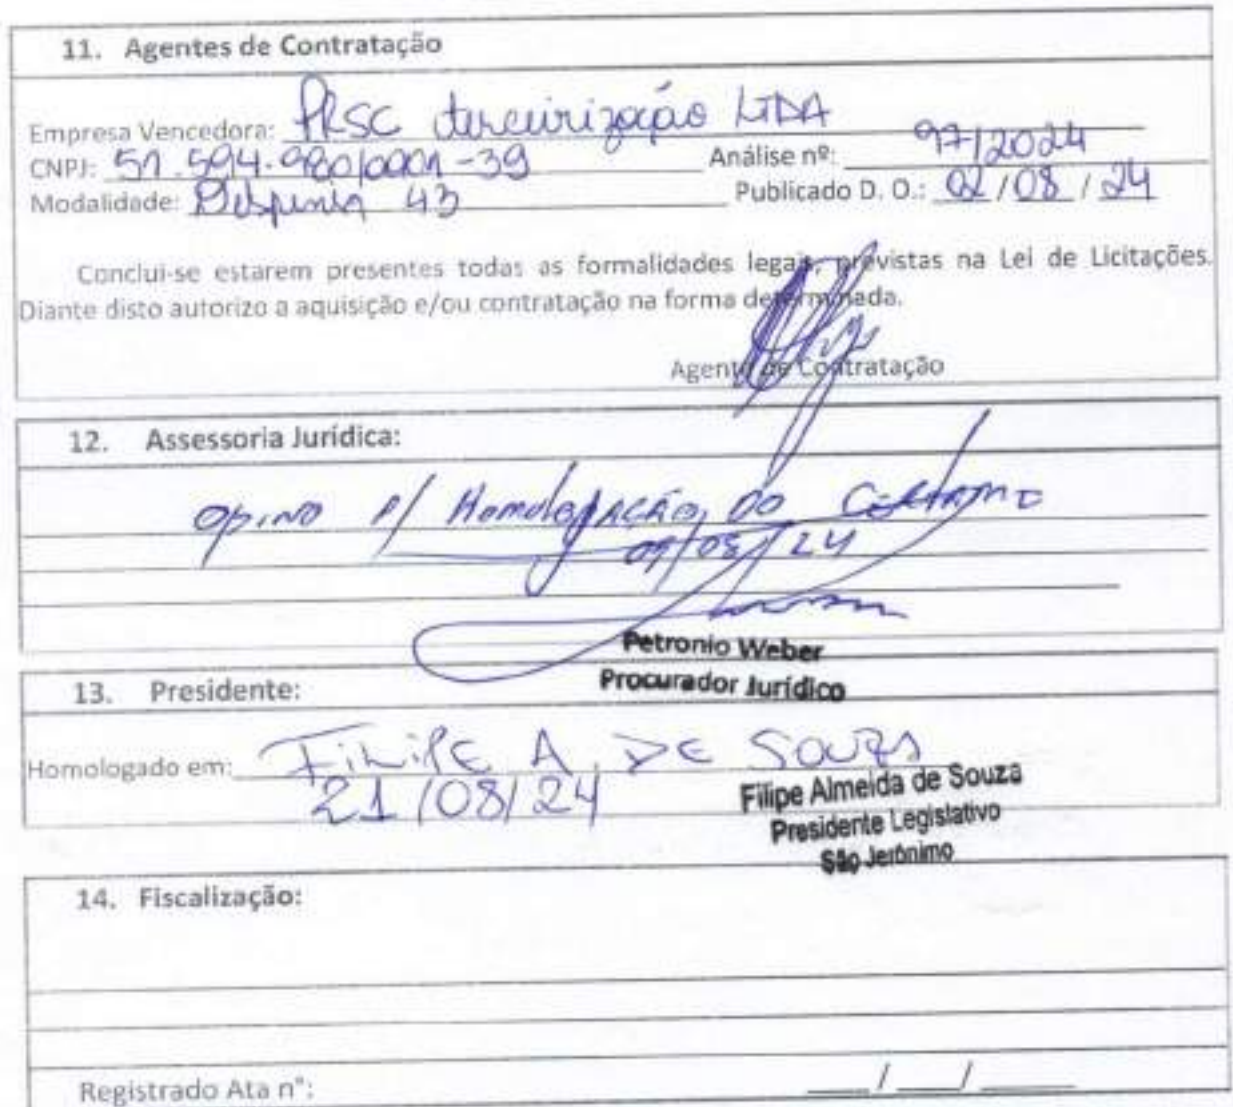 11. Agentes de Contratação
Empresa Vencedora: PRSC terceirização LTDA
CNPJ: 51.594.980/0001-39 Análise nº: 97/2024
Modalidade: Dispensa 43 Publicado D. O.: 02/08/24
Conclui-se estarem presentes todas as formalidades legais, previstas na Lei de Licitações.
Diante disto autorizo a aquisição e/ou contratação na forma determinada.
Agente de Contratação
12. Assessoria Jurídica:
Opino p/ Homologação do
/08/24
Petronio Weber
Procurador Jurídico
13. Presidente:
Homologado em: Filipe A. DE SOUZA
21/08/24
Filipe Almeida de Souza
Presidente Legislativo
São Jerônimo
14. Fiscalização:
Registrado Ata n°: ___/___/_____